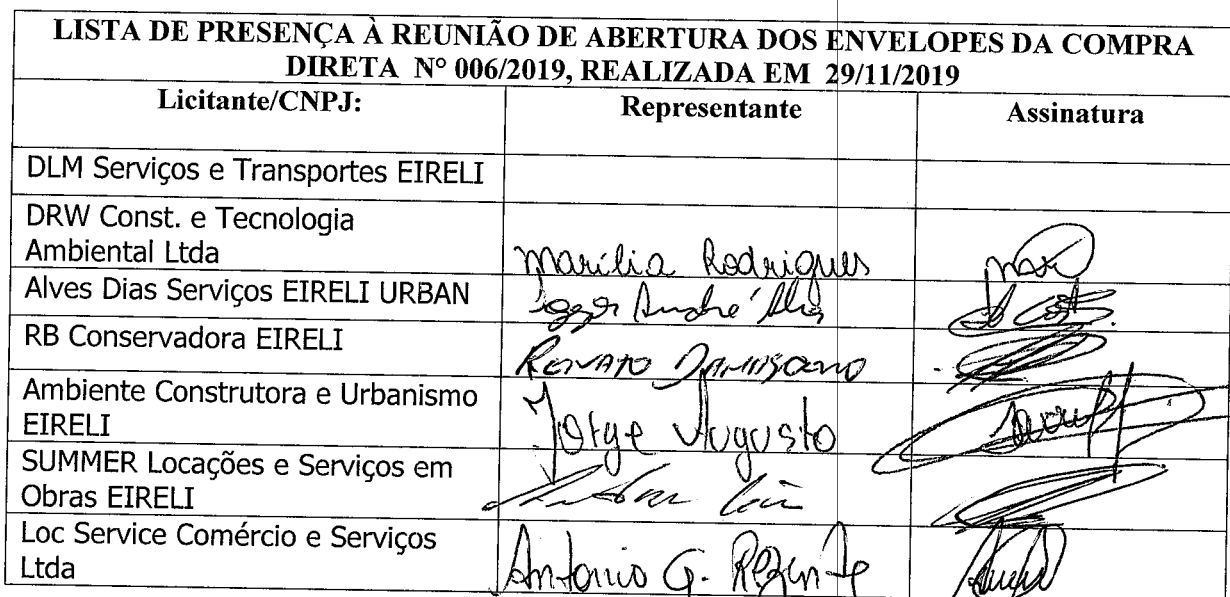 LISTA DE PRESENÇA À REUNIÃO DE ABERTURA DOS ENVELOPES DA COMPRA
DIRETA Nº 006/2019, REALIZADA EM 29/11/2019
Licitante/CNPJ: Representante Assinatura
DLM Serviços e Transportes EIRELI
DRW Const. e Tecnologia
Ambiental Ltda Marília Rodrigues
Alves Dias Serviços EIRELI URBAN André
RB Conservadora EIRELI RENATO
Ambiente Construtora e Urbanismo
EIRELI Jorge Augusto
SUMMER Locações e Serviços em
Obras EIRELI
Loc Service Comércio e Serviços
Ltda Antonio G. Rezende